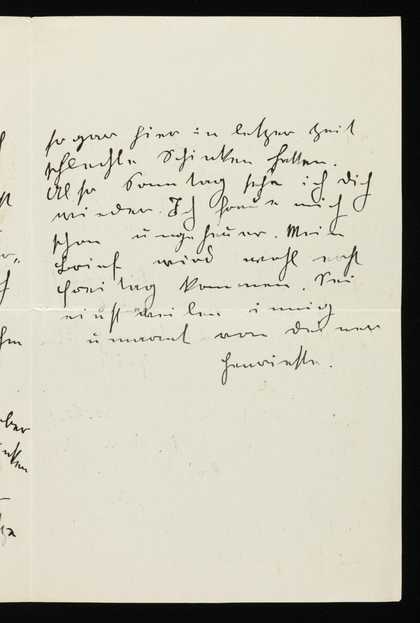 sogar hier in letzter Zeit
schlechte Schinken hatten.
Also Sonntag sehe ich Dich
wieder. Ich freue mich
schon ungeheuer. Mein
Brief wird wohl erst
Freitag kommen. Sei
einstweilen innig
umarmt von Deiner
Henriette.